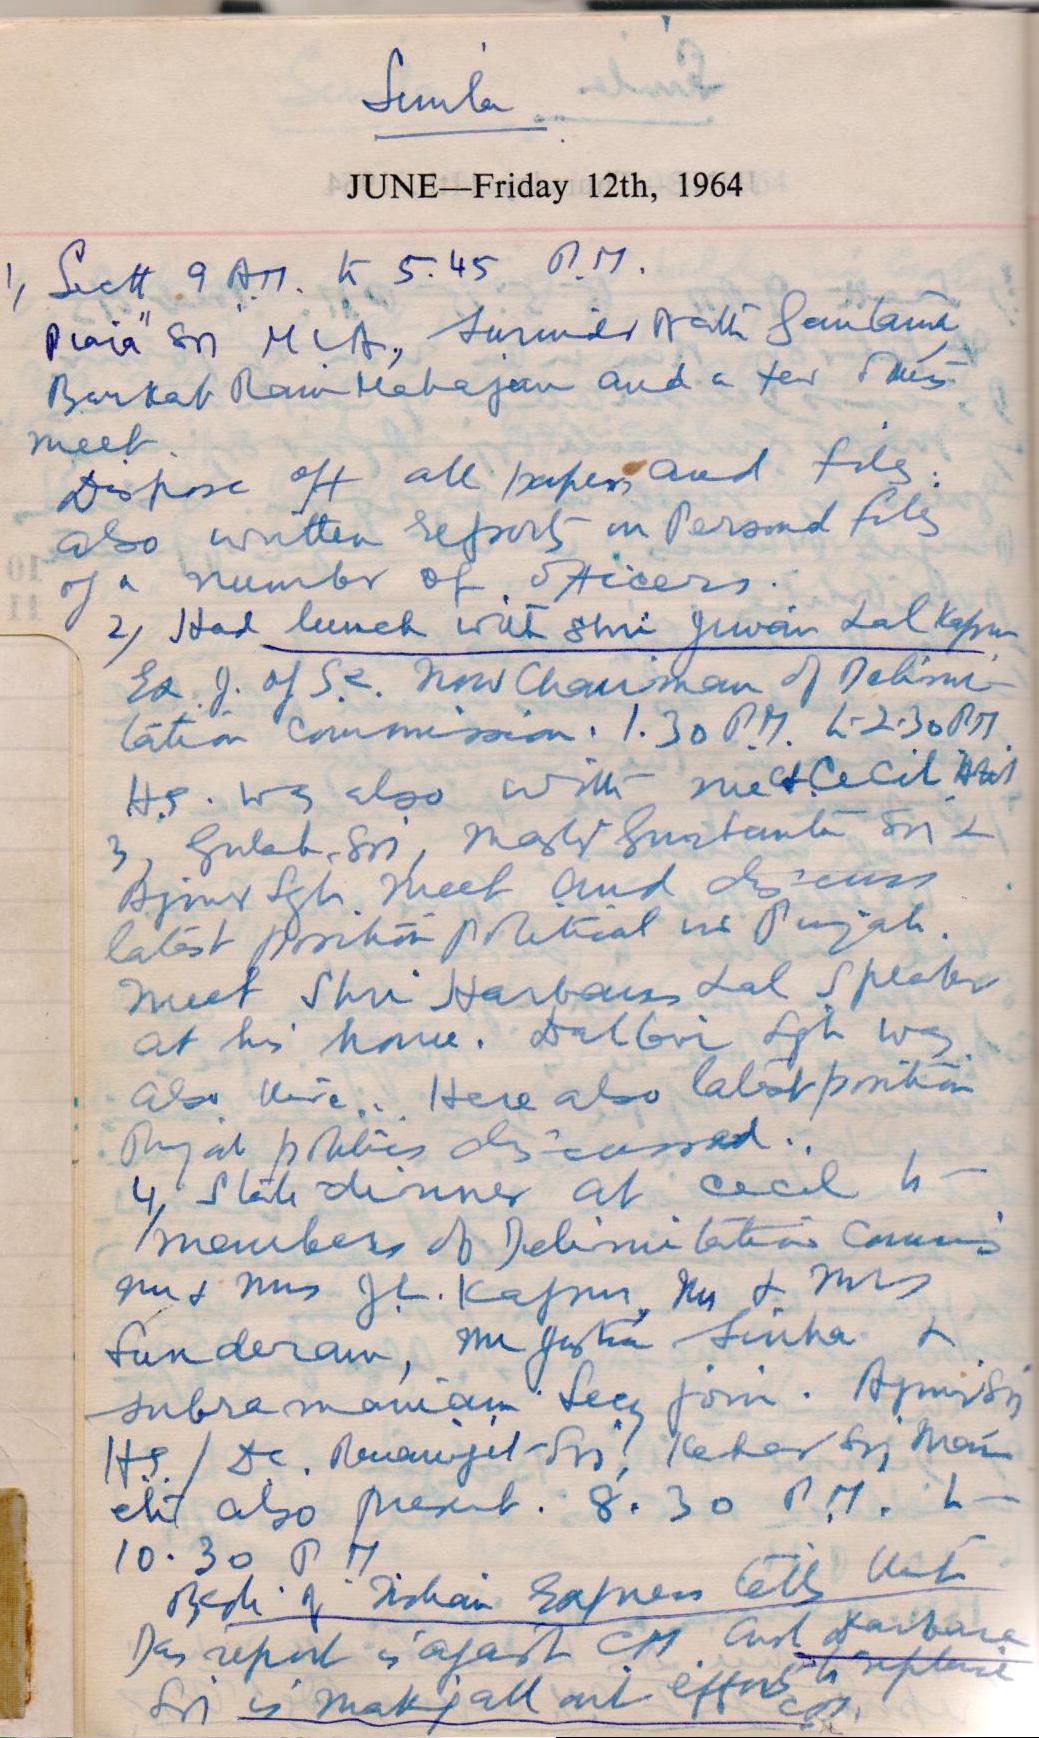 Simla
JUNE—Friday 12th, 1964
1, Sectt 9 A.M. to 5.45 P.M.
Piara Sij MLA, Surinder Nath Gautama,
Barkat Ram Mahajan and a few others
meet.
Dispose off all papers and files.
also written reports in Personal files
of a number of officers.
2, Had lunch with Shri Jiwan Lal Kapur
Ex. J. of S.C. Now Chairman of Delimi-
tation Commission. 1.30 P.M. to 2.30 PM
H.S. was also with me at Cecil Hotel
3, Gulab Sij, Gurbanta Sij &
Ajmer Sgh. meet and discuss
latest position political in Punjab.
Meet Shri Harbans Lal Speaker
at his home. Dalbir Sgh was
also there. Here also latest position
Punjab politics discussed.
4, State dinner at Cecil to
members of Delimitation Commis
Mr & Mrs J.L. Kapur, Mr & Mrs
Sunderam, Mr Justice Sinha &
Subramaniam Secy join. Ajmer Sij
H.S. / DC. Sij, Kehar Sij Mann
etc also present. 8.30 P.M. to
10.30 PM
Bedi of Indian Express tells that
Das report is against CM and Darbara
Sij is making all out efforts to replace
CM.